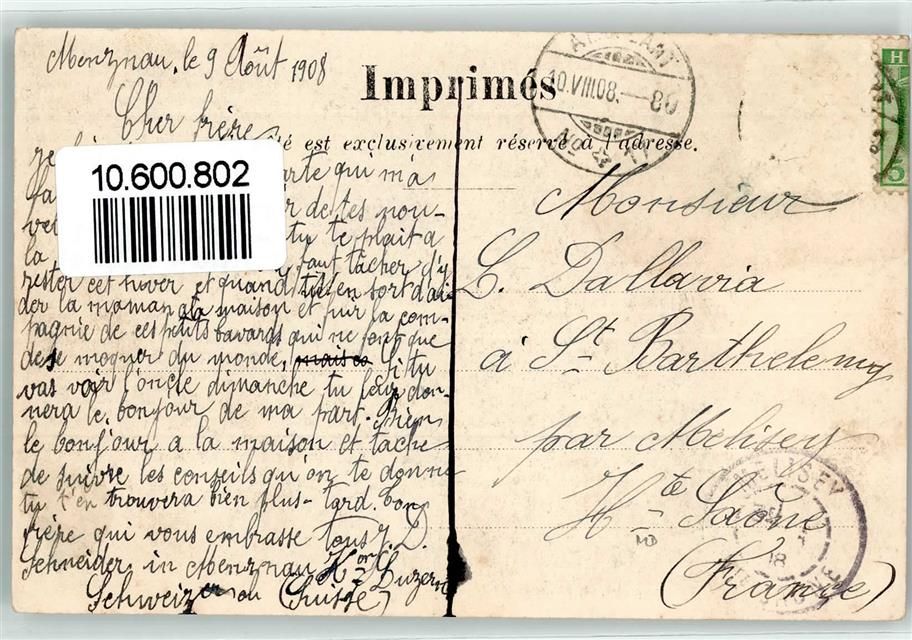 Menznau, le 9 Août 1908
Cher frère
Imprimés
té est exclusivement réservé à l'adresse.
10.VIII.08. 80
H
5
10.600.802
rte qui m'a
r de tes nou-
tu te plait a
la faut tâcher d'y
rester cet hiver et quand tu en sort d'ai-
der la maman a la maison et fur la com-
pagnie de ces petits bavards qui ne font que
de se moquer du monde, Si tu
vas voir l'oncle dimanche tu leur don-
nera le bonjour de ma part. Bien
le bonjour a la maison et tache
de suivre les conseils qu'on te donne
tu t'en trouvera bien plus-tard. Ton
frère qui vous embrasse tous J. D.
Schneider in Menznau Kon Luzern
Schweizer ou (Suisse)
Monsieur
L. Dallavia
à St. Barthelemy
par Melisey
Hte Saône
(France)
MELISEY
18
MD